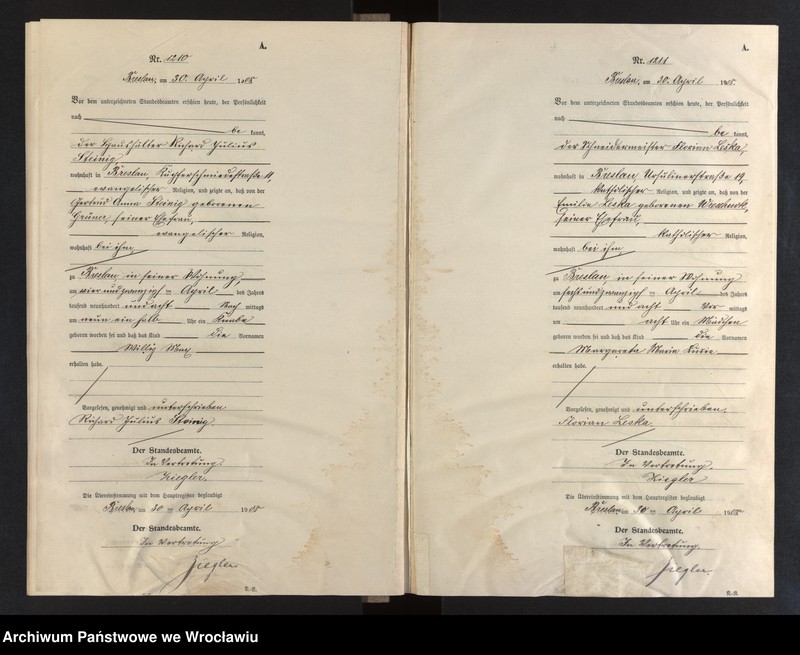 A.
Nr. 1210
Breslau, am 30. April 1908
Vor dem unterzeichneten Standesbeamten erschien heute, der Persönlichkeit
nach
be kannt,
der Haushälter Richard Julius
Steinig
wohnhaft in Breslau, Kupferschmiedestraße 11,
evangelischer Religion, und zeigte an, daß von der
Gertrud Anna Steinig geborenen
seiner Ehefrau,
evangelischer Religion,
wohnhaft bei ihm,
zu Breslau, in seiner Wohnung,
am vier und zwanzigsten April des Jahres
tausend neunhundert und acht Nach mittags
um neun ein halb Uhr ein Knabe
geboren worden sei und daß das Kind die Vornamen
Willy Max
erhalten habe.
Vorgelesen, genehmigt und unterschrieben
Richard Julius Steinig
Der Standesbeamte.
In Vertretung.
Ziegler.
Die Übereinstimmung mit dem Hauptregister beglaubigt
Breslau, am 30 ten April 1908
Der Standesbeamte.
In Vertretung
Ziegler
A.
Nr. 1211
Breslau, am 30. April 1908.
Vor dem unterzeichneten Standesbeamten erschien heute, der Persönlichkeit
nach
be kannt,
der Schneidermeister Florian Leska,
wohnhaft in Breslau, Ursulinerstraße 19,
katholischer Religion, und zeigte an, daß von der
Emilie Leska geborenen
seiner Ehefrau,
katholischer Religion,
wohnhaft bei ihm,
zu Breslau, in seiner Wohnung
am sechs und zwanzigsten April des Jahres
tausend neunhundert und acht Vor mittags
um acht Uhr ein Mädchen
geboren worden sei und daß das Kind die Vornamen
Margarete Maria Luise
erhalten habe.
Vorgelesen, genehmigt und unterschrieben.
Florian Leska.
Der Standesbeamte.
In Vertretung.
Ziegler
Die Übereinstimmung mit dem Hauptregister beglaubigt
Breslau, am 30 ten April 1908
Der Standesbeamte.
In Vertretung.
Ziegler.
Archiwum Państwowe we Wrocławiu